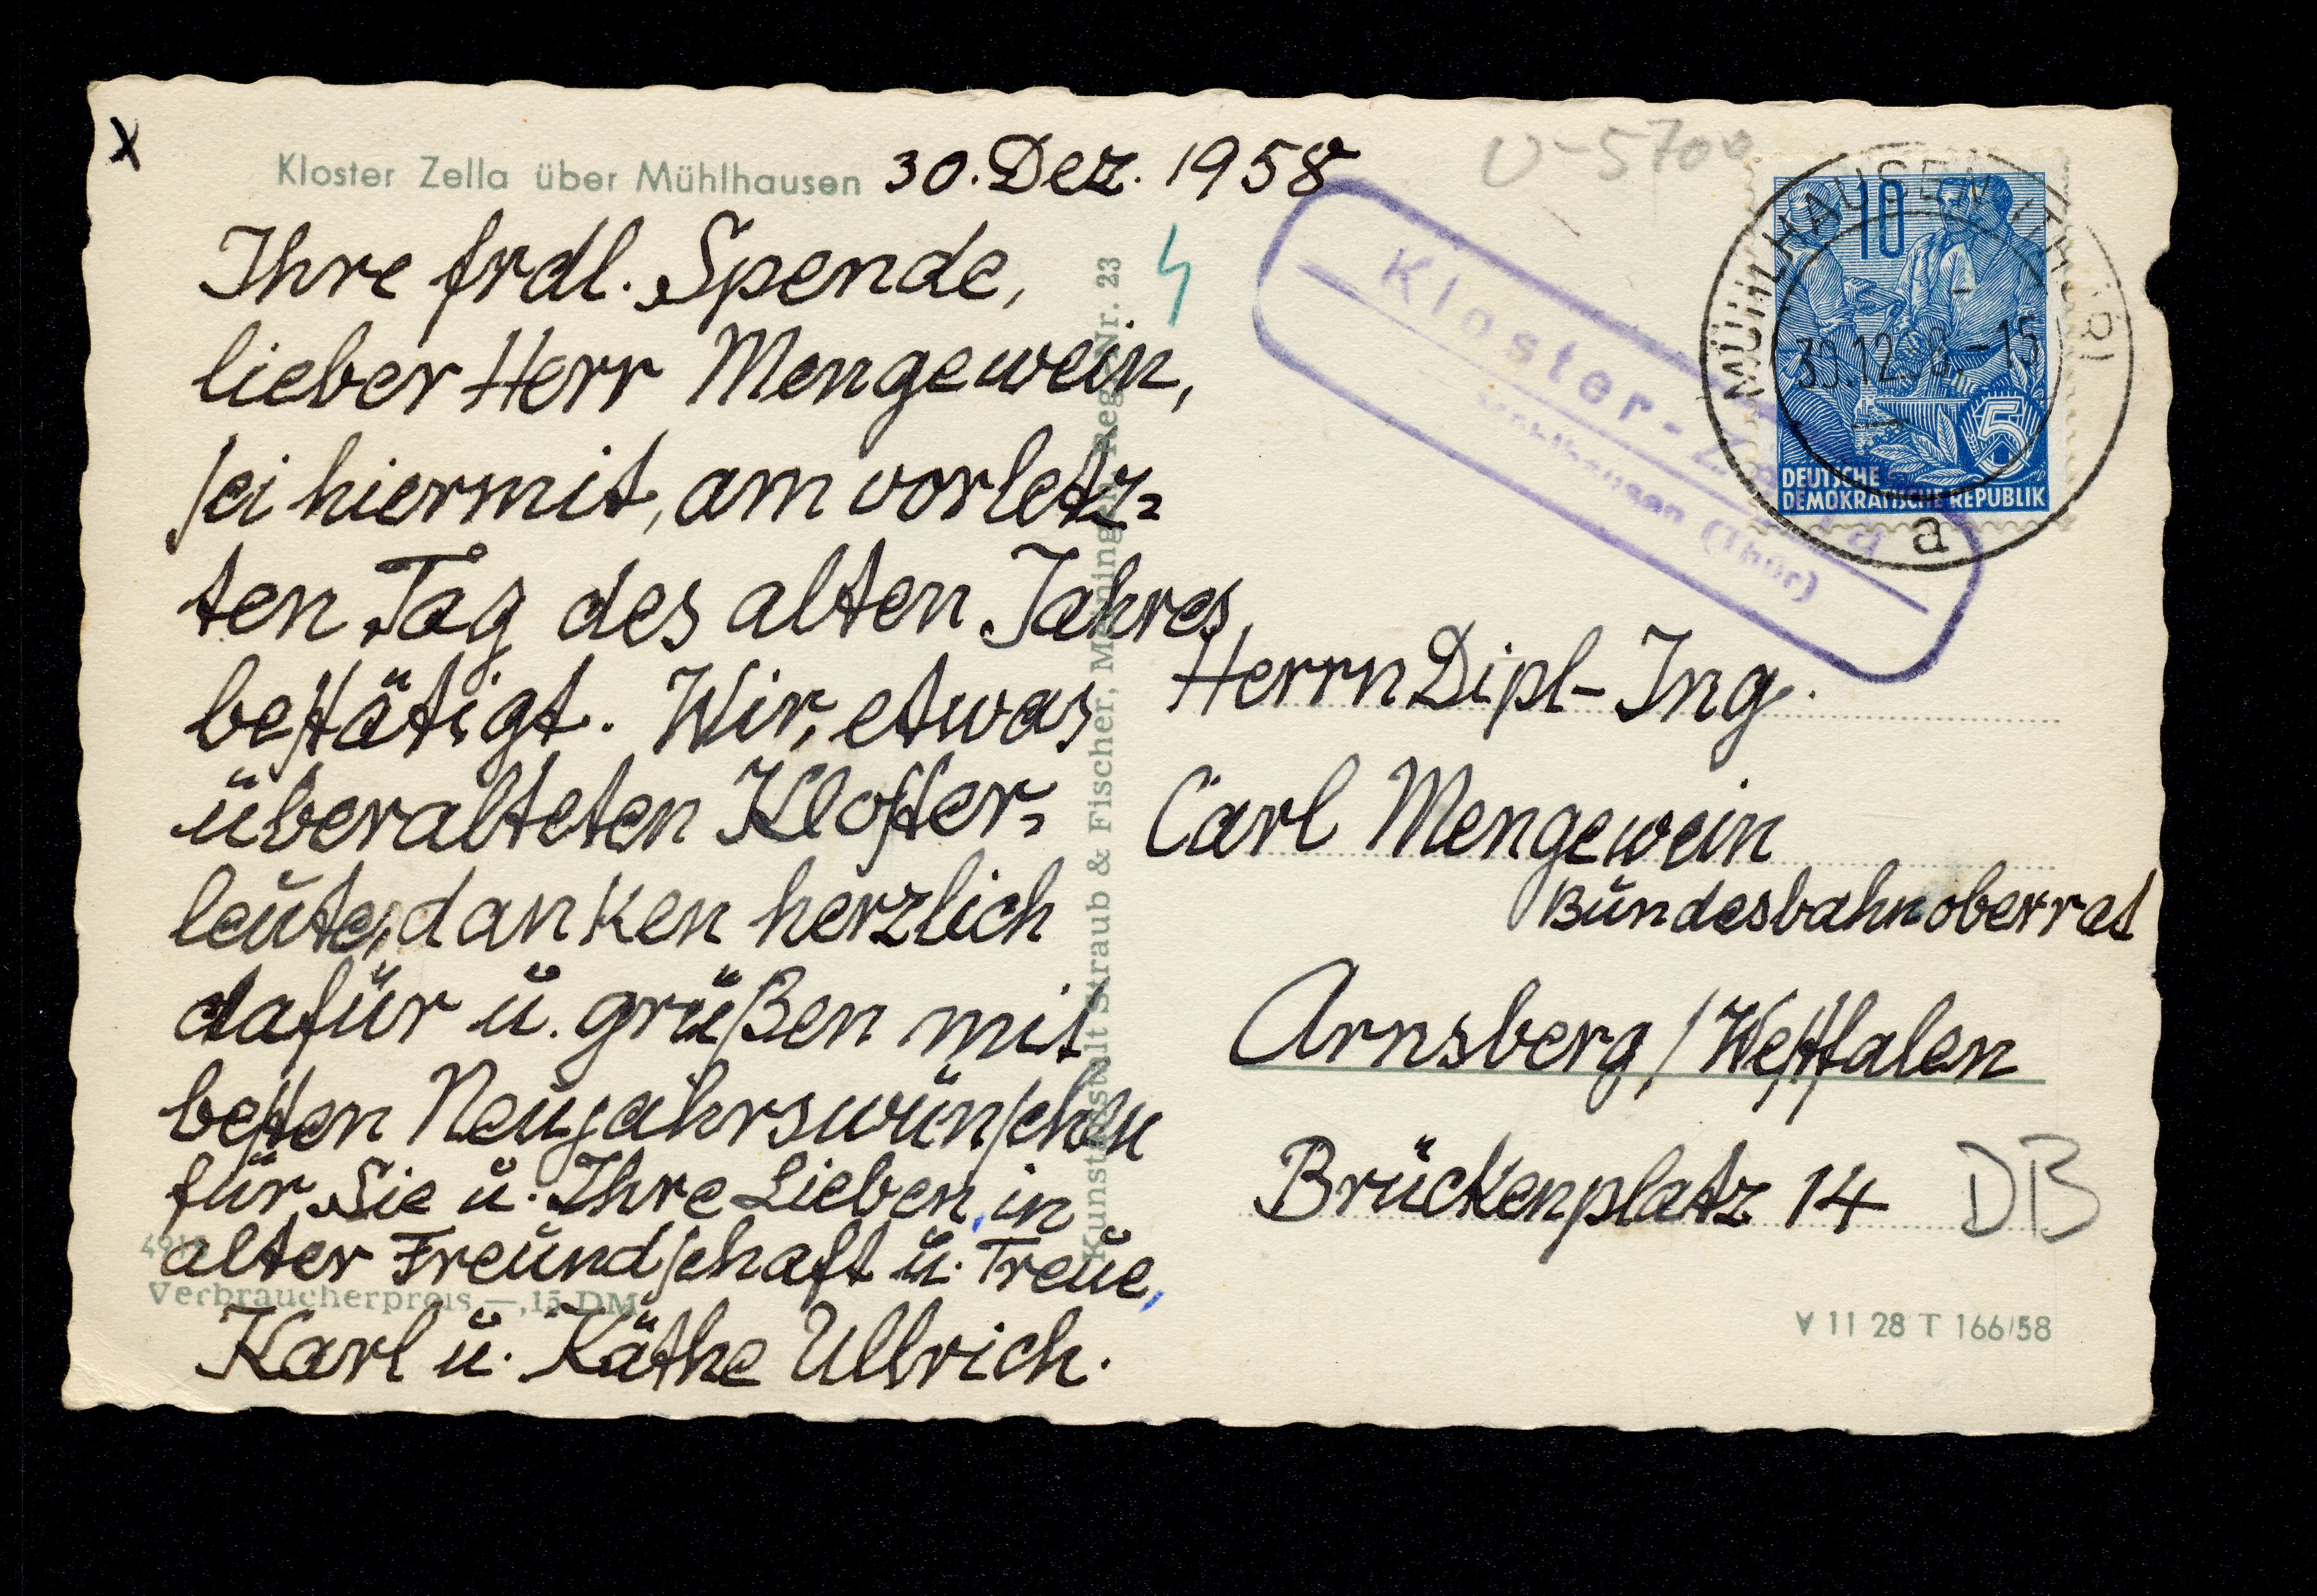 x
Kloster Zella über Mühlhausen 30. Dez. 1958
Ihre frdl. Spende,
lieber Herr Mengewein,
sei hiermit, am vorletz=
ten Tag des alten Jahres,
bestätigt. Wir, etwas
überalteten Kloster=
leute, danken herzlich
dafür u. grüßen mit
besten Neujahrswünschen
für Sie u. Ihre Lieben, in
alter Freundschaft u. Treue,
Karl u. Käthe Ullrich.
Verbraucherpreis —,15 DM
Kunstanstalt Straub & Fischer, Meiningen Reg. Nr. 23
U-5700
Kloster-Zella
Mühlhausen (Thür)
MÜHLHAUSEN (THÜR)
30.12.58.-15
a
10
5
DEUTSCHE
DEMOKRATISCHE REPUBLIK
Herrn Dipl-Ing.
Carl Mengewein
Bundesbahnoberrat
Arnsberg/Westfalen
Brückenplatz 14
DB
V 11 28 T 166/58